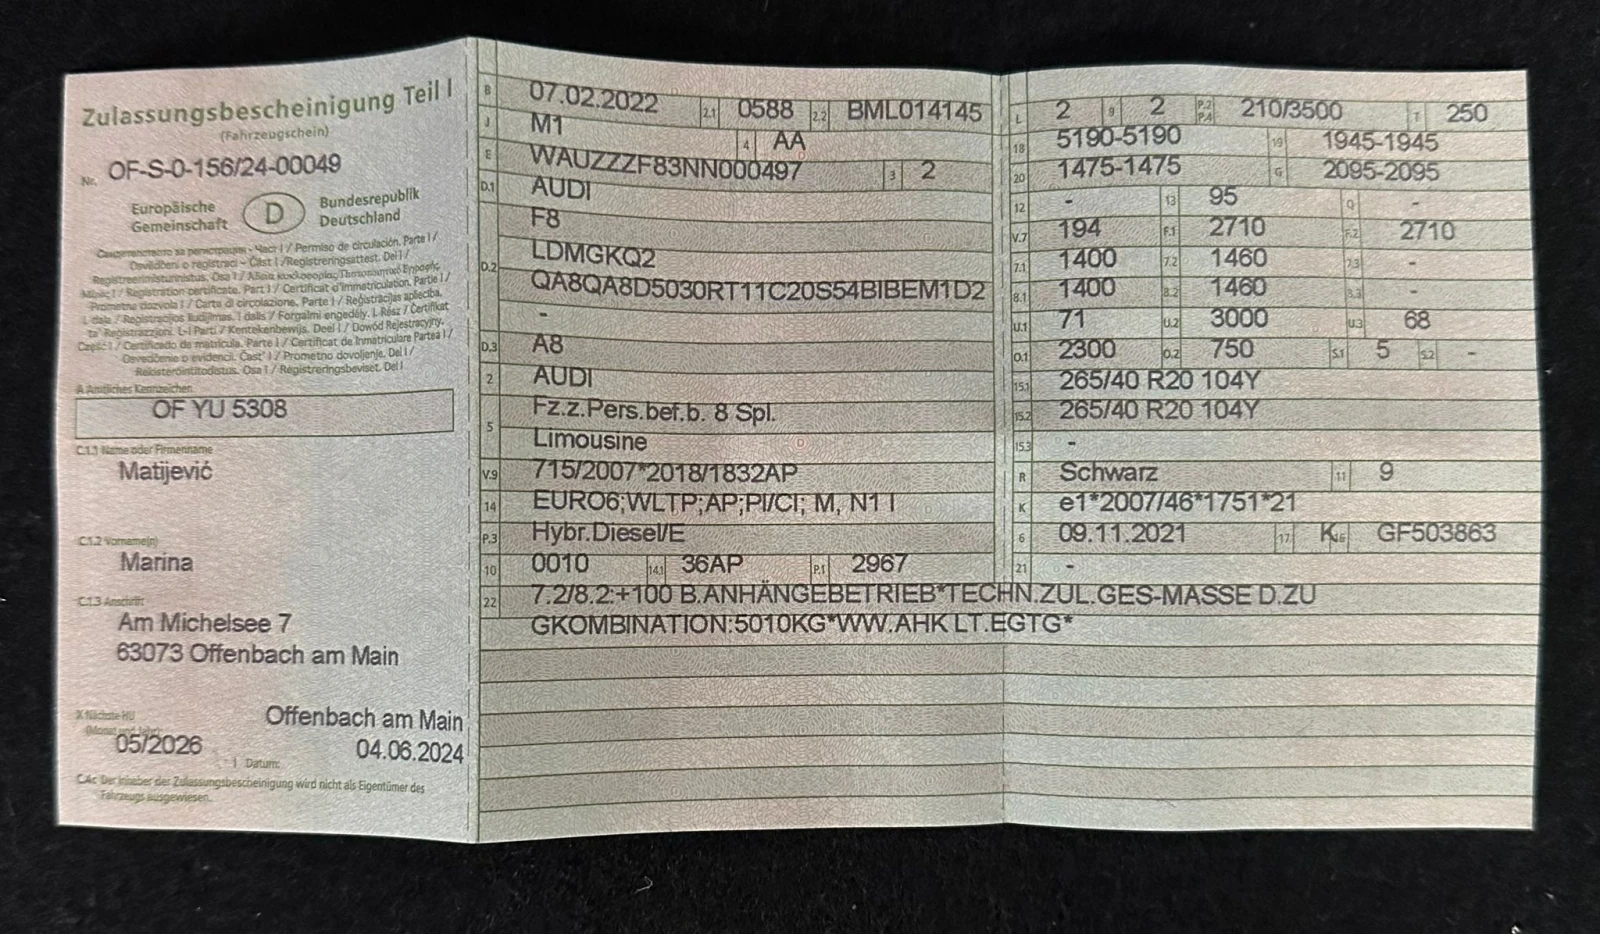 Zulassungsbescheinigung Teil I
(Fahrzeugschein)
Nr. OF-S-0-156/24-00049
Europäische Gemeinschaft D Bundesrepublik Deutschland
Свидетелство за регистрация - Част I / Permiso de circulación. Parte I /
Osvědčení o registraci - Část I / Registreringsattest. Del I /
Registreerimistunnistus. Osa I / Άδεια κυκλοφορίας
/ Registration certificate. Part I / Certificat d'immatriculation. Partie I /
Prometna dozvola I / Carta di circolazione. Parte I / Reģistrācijas apliecība.
I. daļa / Registracijos liudijimas. I dalis / Forgalmi engedély. I. Rész / Ċertifikat
ta' Reġistrazzjoni. L-I Parti / Kentekenbewijs. Deel I / Dowód Rejestracyjny.
Część I / Certificado de matrícula. Parte I / Certificat de înmatriculare Partea I /
Osvedčenie o evidencii. Časť I / Prometno dovoljenje. Del I /
Rekisteröintitodistus. Osa I / Registreringsbeviset. Del I
A Amtliches Kennzeichen
OF YU 5308
C.1.1 Name oder Firmenname
Matijević
C.1.2 Vorname(n)
Marina
C.1.3 Anschrift
Am Michelsee 7
63073 Offenbach am Main
X Nächste HU
Offenbach am Main
05/2026
04.06.2024
I Datum:
C.4c Der Inhaber der Zulassungsbescheinigung wird nicht als Eigentümer des
Fahrzeugs ausgewiesen.
B 07.02.2022 2.1 0588 2.2 BML014145
J M1 4 AA
E WAUZZZF83NN000497 3 2
D.1 AUDI
F8
D.2 LDMGKQ2
QA8QA8D5030RT11C20S54BIBEM1D2
-
D.3 A8
2 AUDI
5 Fz.z.Pers.bef.b. 8 Spl.
Limousine
V.9 715/2007*2018/1832AP
14 EURO6;WLTP;AP;PI/CI; M, N1 I
P.3 Hybr.Diesel/E
10 0010 14.1 36AP P.1 2967
L 2 9 2 P.2 P.4 210/3500 T 250
18 5190-5190 19 1945-1945
20 1475-1475 G 2095-2095
12 - 13 95 Q -
V.7 194 F.1 2710 F.2 2710
7.1 1400 7.2 1460 7.3 -
8.1 1400 8.2 1460 8.3 -
U.1 71 U.2 3000 U.3 68
O.1 2300 O.2 750 S.1 5 S.2 -
15.1 265/40 R20 104Y
15.2 265/40 R20 104Y
15.3 -
R Schwarz 11 9
K e1*2007/46*1751*21
6 09.11.2021 17 K 16 GF503863
21 -
22 7.2/8.2:+100 B.ANHÄNGEBETRIEB*TECHN.ZUL.GES-MASSE D.ZU
GKOMBINATION:5010KG*WW.AHK LT.EGTG*